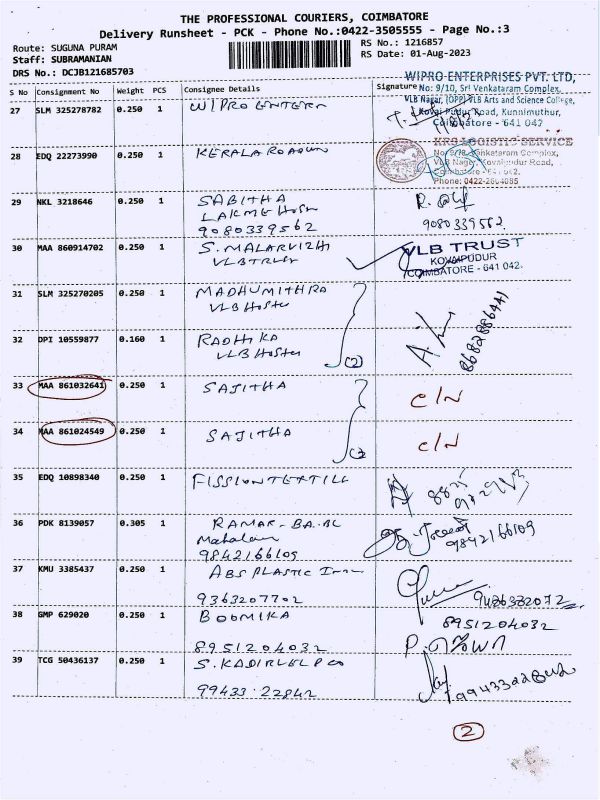 THE PROFESSIONAL COURIERS, COIMBATORE
Delivery Runsheet - PCK - Phone No.:0422-3505555 - Page No.:3
Route: SUGUNA PURAM
Staff: SUBRAMANIAN
DRS No.: DCJB121685703
RS No.: 1216857
RS Date: 01-Aug-2023
S No Consignment No Weight PCS Consignee Details Signature
WIPRO ENTERPRISES PVT. LTD,
No: 9/10, Sri Venkataram Complex,
VLB Nagar, (OPP) VLB Arts and Science College,
Kovai Pudur Road, Kunnimuthur,
Coimbatore - 641 042
27 SLM 325278782 0.250 1 WIPRO ENTERN
28 EDQ 22273990 0.250 1 KERALA ROADWS
KRS LOGISTIC SERVICE
No: 9/10, Venkataram Complex,
VLB Nagar, Kovaipudur Road,
Coimbatore - 641 042.
Phone: 0422-2604085
29 NKL 3218646 0.250 1 SABITHA
LAKME HOSU
9080339562
R.
9080339562
30 MAA 860914702 0.250 1 S. MALARVIZHI
VLB TRUST
VLB TRUST
KOVAIPUDUR
COIMBATORE - 641 042.
31 SLM 325270205 0.250 1 MADHUMITHRA
VLB Hostel
32 DPI 10559877 0.160 1 RADHIKA
VLB Hostel
(2)
8682886441
33 MAA 861032641 0.250 1 SAJITHA
C/N
34 MAA 861024549 0.250 1 SAJITHA
C/N
35 EDQ 10898340 0.250 1 FISSION TEXTILL
36 PDK 8139057 0.305 1 RAMAR - BA.BL
Mahalam
9842166109
9842166109
37 KMU 3385437 0.250 1 ABS PLASTIC
9363207702
9486332072
38 GMP 629020 0.250 1 BOOMIKA
8951204032
8951204032
39 TCG 50436137 0.250 1 S. KADIRVEL P
99433 22842
9943322842
2